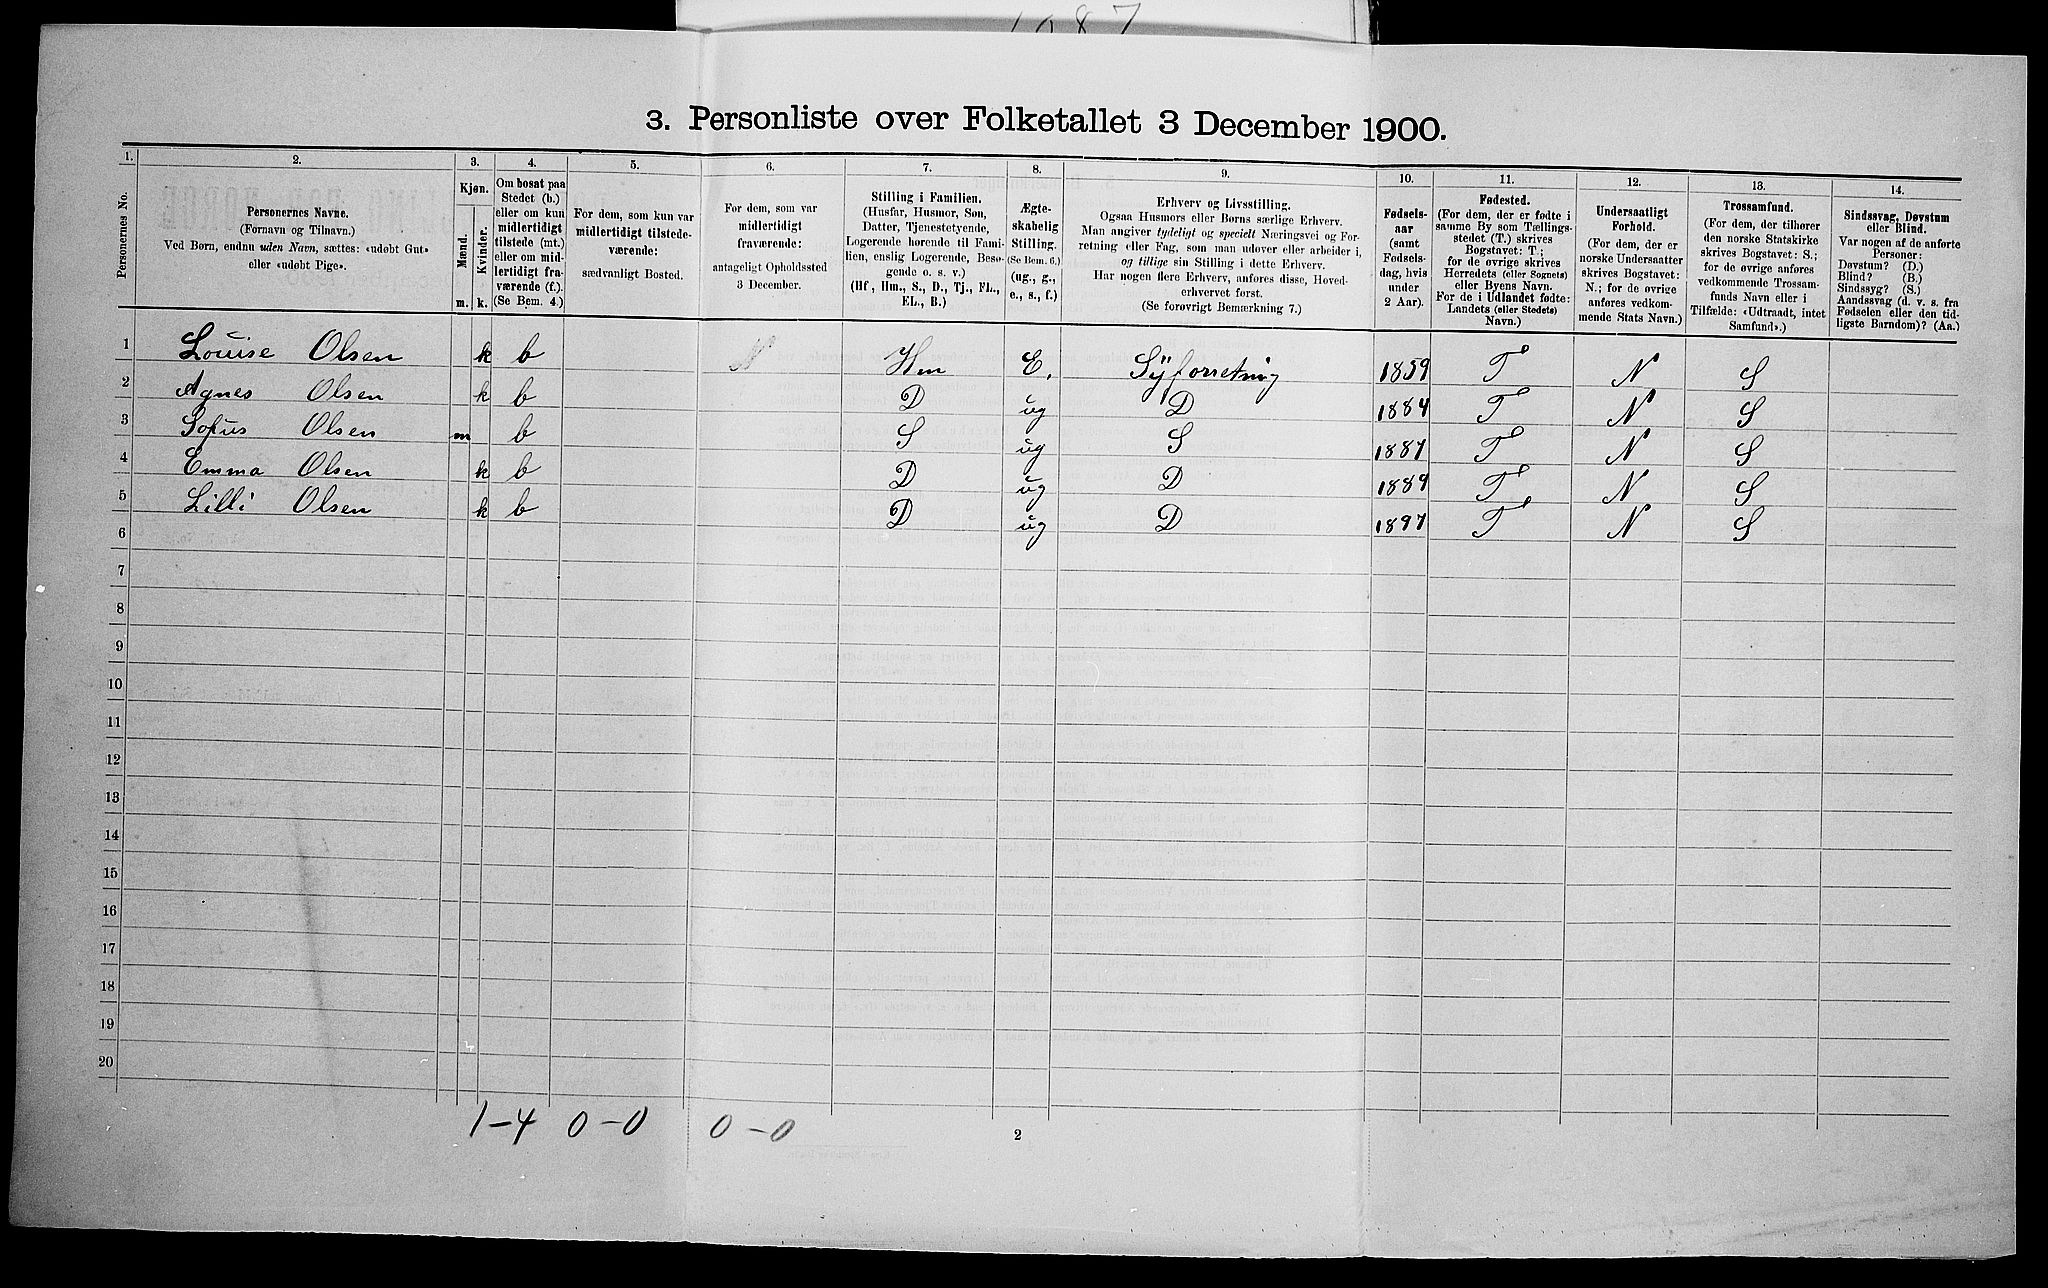 1087
3. Personliste over Folketallet 3 December 1900.
1. 2. 3. 4. 5. 6. 7. 8. 9. 10. 11. 12. 13. 14.
Personernes No.
Personernes Navne.
(Fornavn og Tilnavn.)
Ved Børn, endnu uden Navn, sættes: «udøbt Gut»
eller «udøbt Pige».
Kjøn.
Mænd.
Kvinder.
m. k.
Om bosat paa
Stedet (b.)
eller om kun
midlertidigt
tilstede (mt.)
eller om mid-
lertidigt fra-
værende (f.)
(Se Bem. 4.)
For dem, som kun var
midlertidigt tilstede-
værende:
sædvanligt Bosted.
For dem, som var
midlertidigt
fraværende:
antageligt Opholdssted
3 December.
Stilling i Familien.
(Husfar, Husmor, Søn,
Datter, Tjenestetyende,
Logerende hørende til Fami-
lien, enslig Logerende, Besø-
gende o. s. v.)
(Hf, Hm., S., D., Tj., FL.,
EL., B.)
Ægte-
skabelig
Stilling.
(Se Bem. 6.)
(ug., g.,
e., s., f.)
Erhverv og Livsstilling.
Ogsaa Husmors eller Børns særlige Erhverv.
Man angiver tydeligt og specielt Næringsvei og For-
retning eller Fag, som man udover eller arbeider i,
og tillige sin Stilling i dette Erhverv.
Har nogen flere Erhverv, anføres disse, Hoved-
erhvervet først.
(Se forøvrigt Bemærkning 7.)
Fødsels-
aar
(samt
Fødsels-
dag, hvis
under
2 Aar).
Fødested.
(For dem, der er fødte i
samme By som Tællings-
stedet (T.) skrives
Bogstavet: T.;
for de øvrige skrives
Herredets (eller Sognets)
eller Byens Navn.
For de i Udlandet fødte:
Landets (eller Stedets)
Navn.)
Undersaatligt
Forhold.
(For dem, der er
norske Undersaatter
skrives Bogstavet:
N.; for de øvrige
anføres vedkom-
mende Stats Navn.)
Trossamfund.
(For dem, der tilhører
den norske Statskirke
skrives Bogstavet: S.;
for de øvrige anføres
vedkommende Trossam-
funds Navn eller i
Tilfælde: «Udtraadt, intet
Samfund».)
Sindssvag, Døvstum
eller Blind.
Var nogen af de anførte
Personer:
Døvstum? (D.)
Blind? (B.)
Sindssyg? (S.)
Aandssvag (d. v. s. fra
Fødselen eller den tid-
ligste Barndom)? (Aa.)
1 Louise Olsen k b N Hm E. Syforretning 1859 T N S
2 Agnes Olsen k b D ug D 1884 T N S
3 Sofus Olsen m b S ug S 1887 T N S
4 Emma Olsen k b D ug D 1889 T N S
5 Lilli Olsen k b D ug D 1897 T N S
6
7
8
9
10
11
12
13
14
15
16
17
18
19
20
1-4 0-0 0-0
2